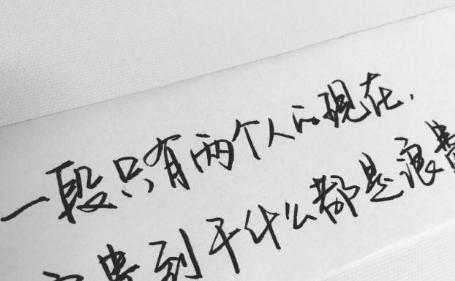 一段只有两个人的现在,
贵到干什么都是浪费